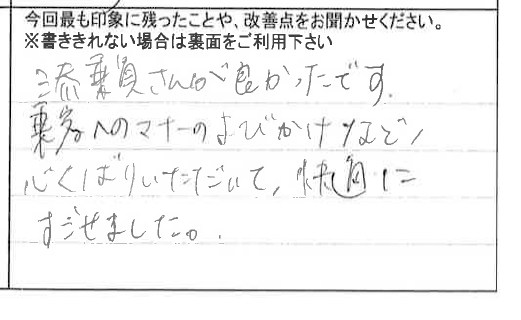 今回最も印象に残ったことや、改善点をお聞かせください。
※書ききれない場合は裏面をご利用下さい
添乗員さんが良かったです。
乗客へのマナーのよびかけなど、
心くばりいただいて、快適に
すごせました。